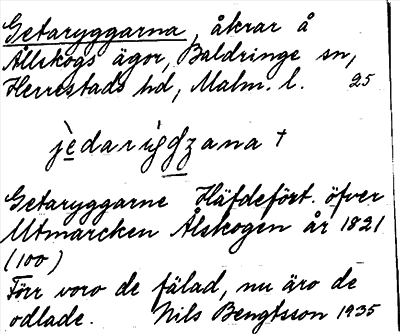 Getaryggarna, åkrar å
Ållskogs ägor, Baldringe sn,
Herrestads hd, Malm. l. 25
jèdarìgdzana †
Getaryggarne Häfdeført. öfver
Utmarcken Ålskogen år 1821
(100)
Förr voro de fälad, nu äro de
odlade. Nils Bengtsson 1935